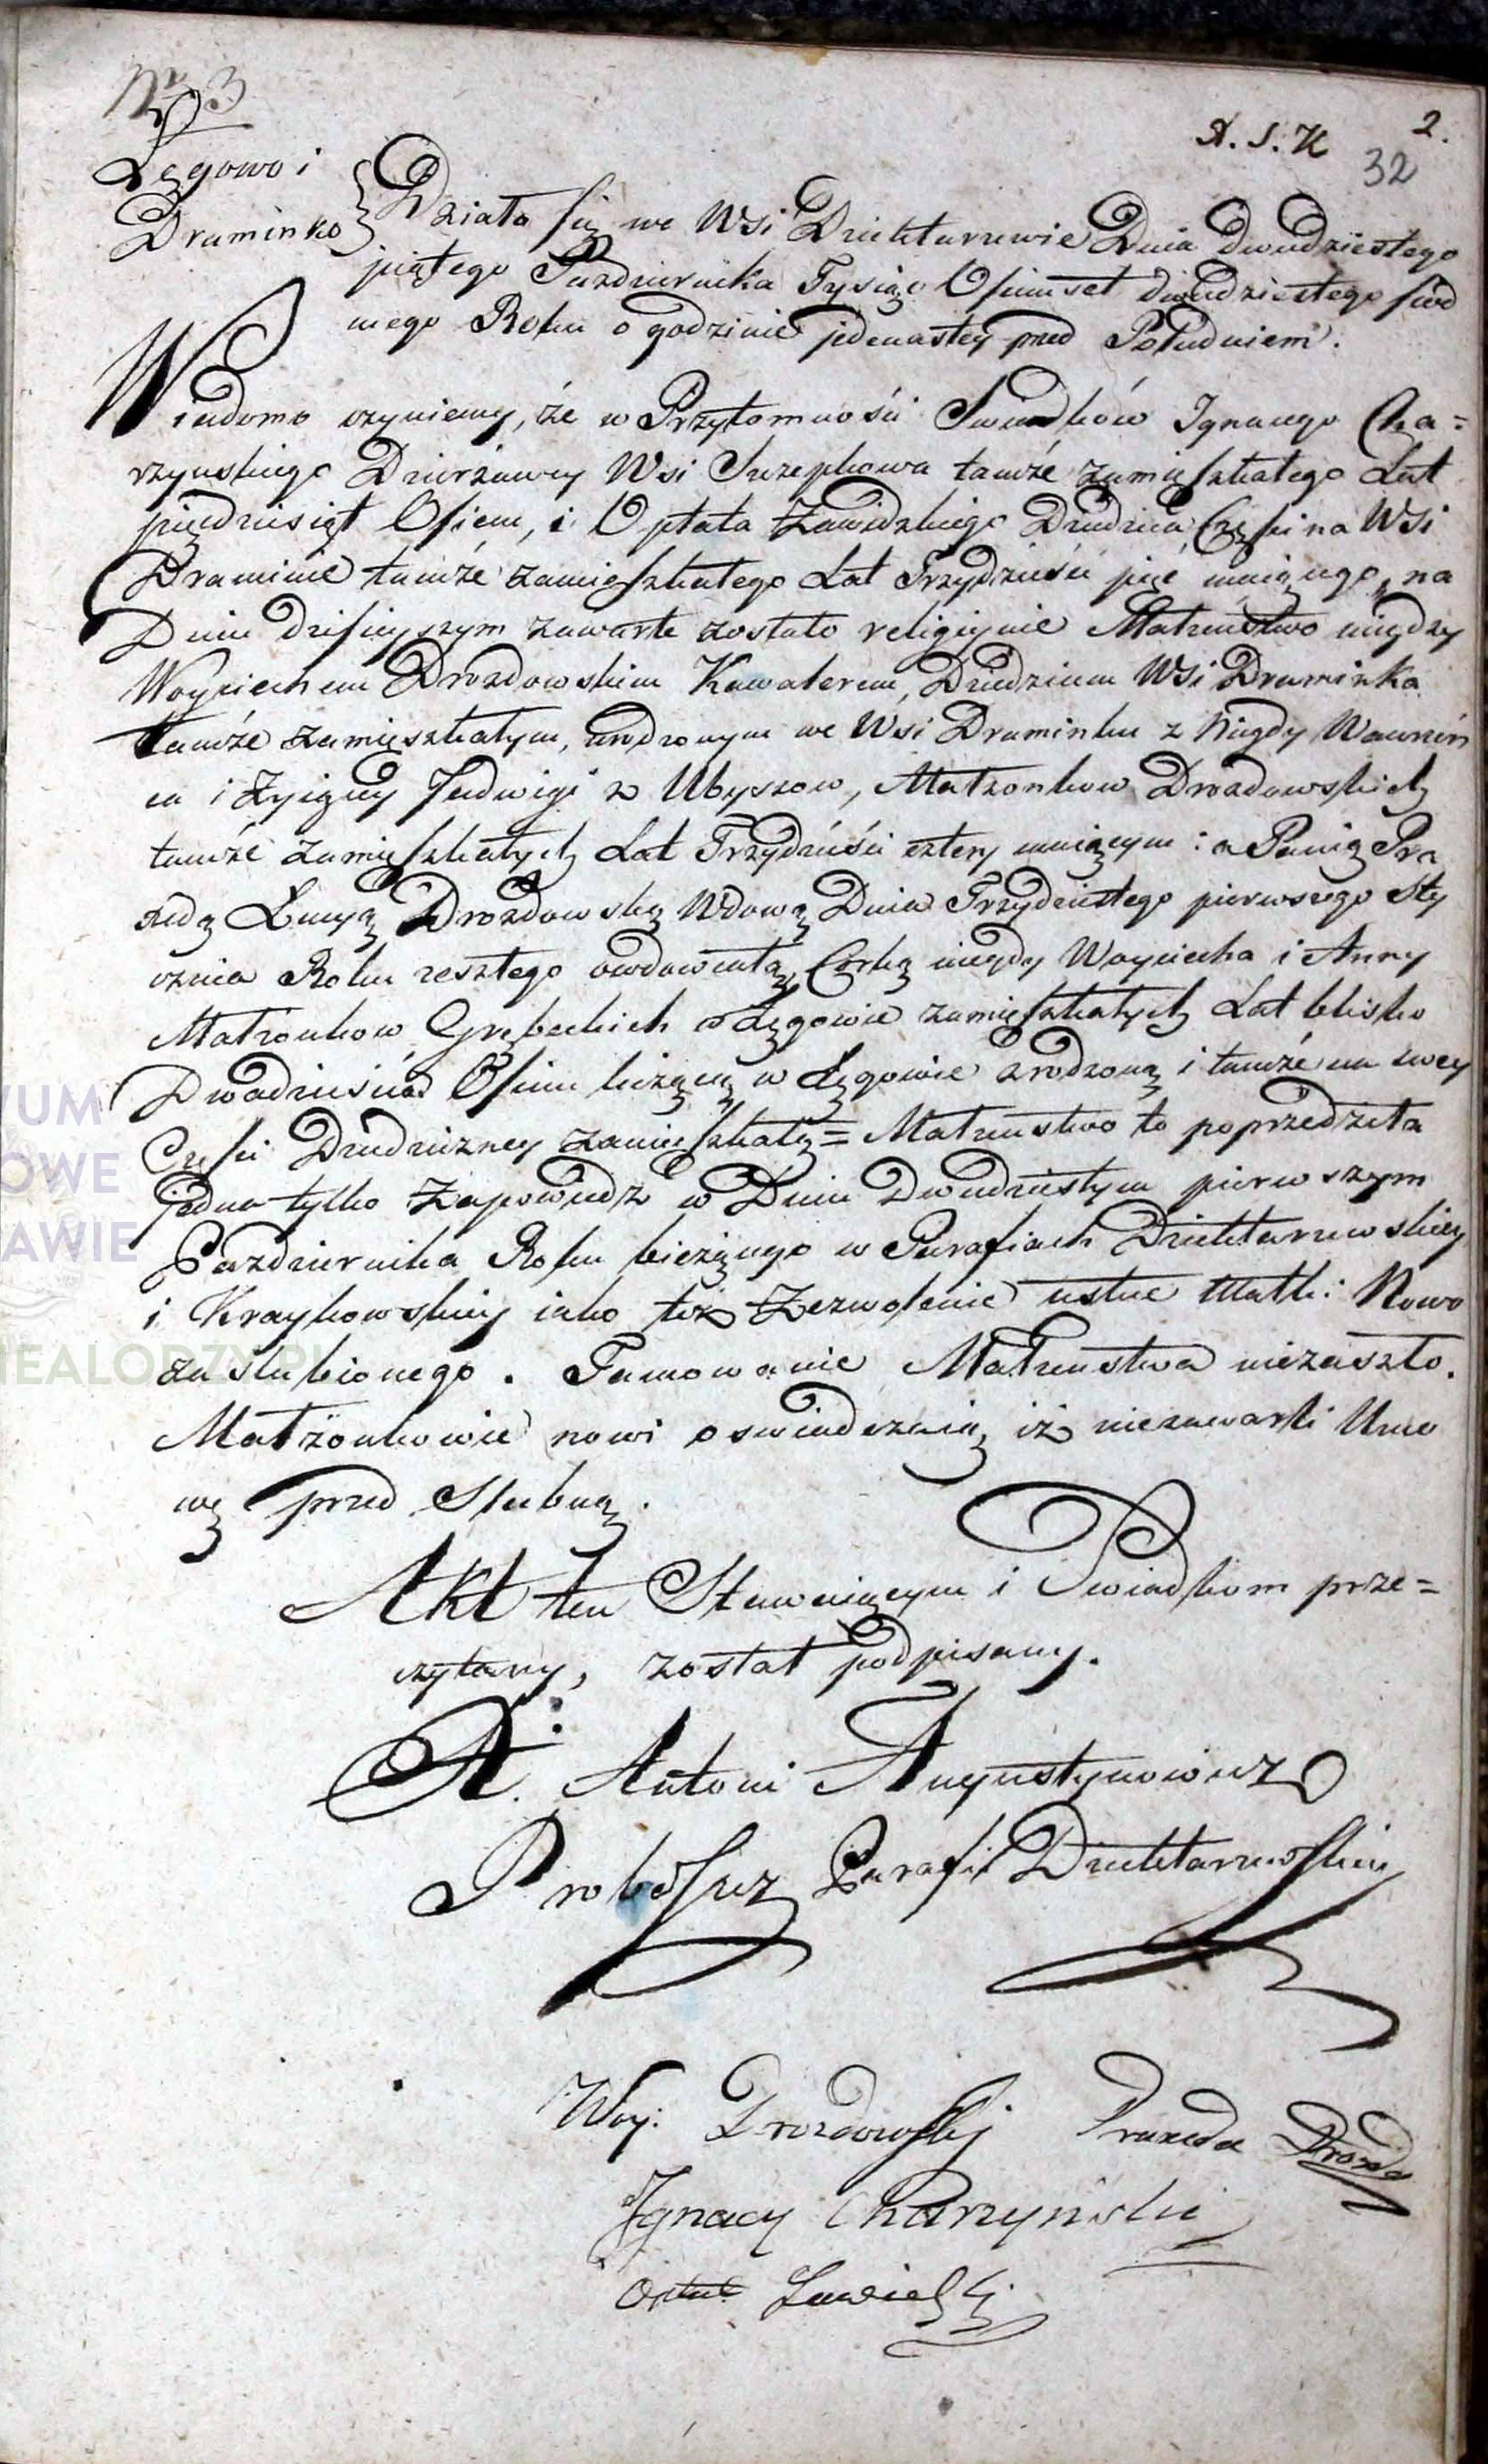 Nr 3
A. S. K 2.
32
Łęgowo i
Draminko
Działo się we Wsi Dziektarzewie Dnia dwudziestego
piątego Pazdziernika Tysiąc Osimset dwudziestego siod
mego Roku o godzinie jedenastey przed Południem.
Wiadomo czyniemy, że w Przytomności Swiadków Ignacego Cha=
rzynskiego Dzierżawcy Wsi Szczepkowa tamże zamięszkałego Lat
pięćdziesiąt Osiem, i Optata Zawidzkiego Dziedzica Części na Wsi
Draminie tamże zamięszkałego Lat Trzydzieści pięć maiącego, na
Dniu dzisieyszym zawarte zostało religiynie Małzeństwo między
Woyciechem Drozdowskim Kawalerem, Dziedzicem Wsi Draminka
tamże zamięszkałym, urodzonym we Wsi Draminku z Niegdy Wawrzeń
ca i Zyiącey Jadwigi z Ubyszow, Małzonkow Drozdowskich
tamże zamięszkałych Lat Trzydzieści cztery maiącym: a Panią Pra
xedą Łucyą Drozdowską Wdową Dnia Trzydziestego pierwszego Sty
cznia Roku zeszłego owdowiałą, Córką niegdy Woyciecha i Anny
Małżonkow Grębeckich w Łęgowie zamięszkałych Lat blisko
Dwadzieścia Osim liczącą w Łęgowie zrodzoną i tamże na swey
Części Dziedziczney zamieszkałą = Małzenstwo to poprzedziła
jedna tylko Zapowiedz w Dniu Dwudziestym pierwszym
Pazdziernika Roku bieżącego w Parafiach Dziektarzewskiey
i Kraykowskiey iako też Zezwolenie ustne Matki Nowo
zaslubionego. Tamowanie Małzenstwa niezaszło.
Małżonkowie nowi oswiadczaią, iż niezawarli Umo
wę przed Slubną.
Akt ten Stawaiącym i Swiadkom prze=
czytany, został podpisany.
X. Antoni Augustynowicz
Proboszcz Parafii Dziektarzewskiey
Woy: Drozdowskj Praxeda Drozdo
Ignacy Charzyński
Optat Zawidzkj